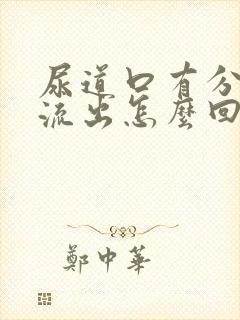 尿道口有分
流出怎麼回
鄭中華